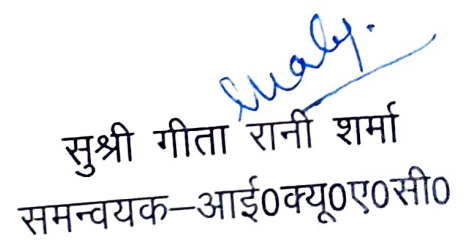 सुश्री गीता रानी शर्मा
समन्वयक–आई0क्यू0ए0सी0